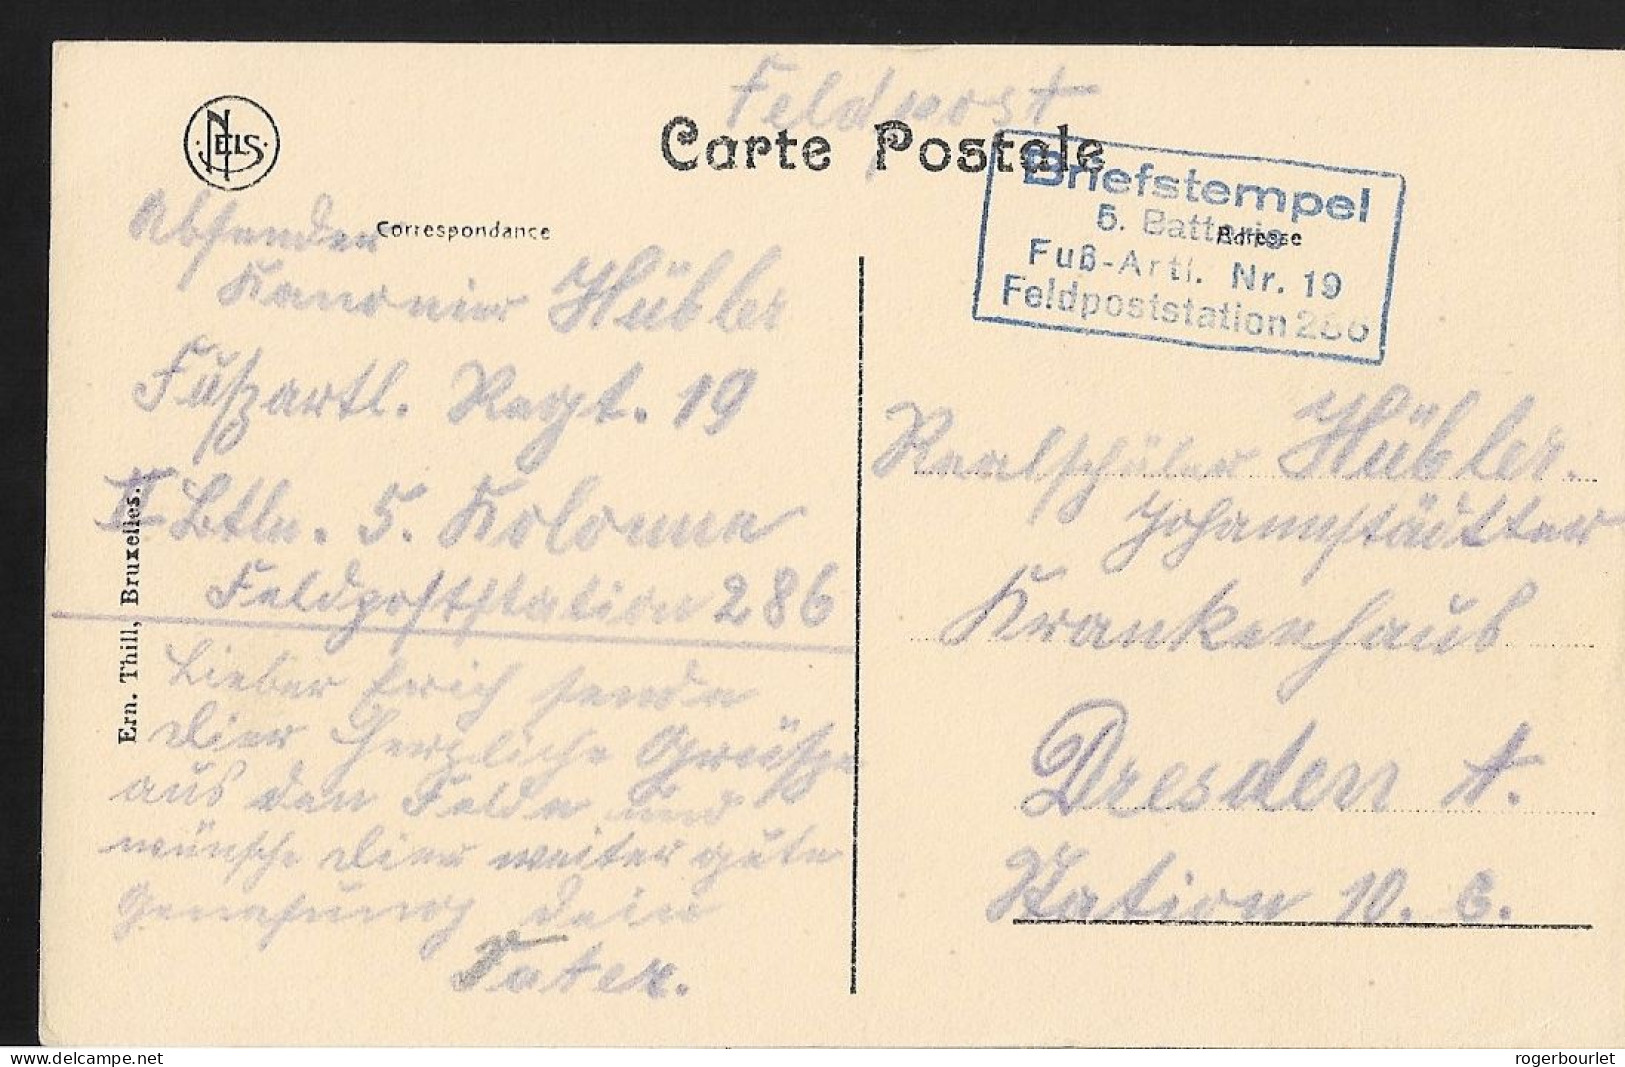 Feldpost
NELS
Carte Postale
Correspondance
Adresse
Briefstempel
5. Batterie
Fuß-Artl. Nr. 19
Feldpoststation 286
Absender
Kanonier Hübler
Fußartl. Regt. 19
II Btln. 5. Kolonne
Feldpoststation 286
Lieber Erich sende
Dier herzliche Grüße
aus den Felde und
wünsche Dier weiter gute
Genesung dein
Vater.
Realschüler Hübler.
Johannstädtter
Krankenhaus
Dresden A.
Station 10. C.
Ern. Thill, Bruxelles.
delcampe.net
rogerbourlet